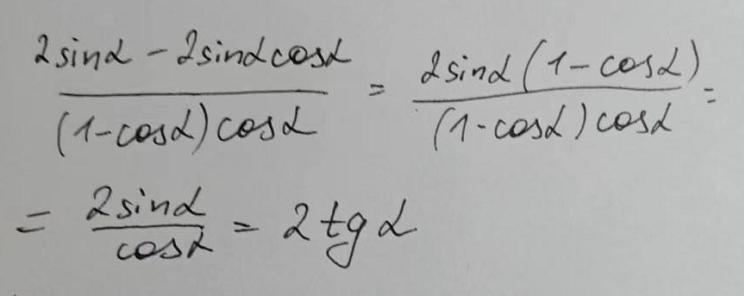 (2sinα - 2sinαcosα)/((1-cosα)cosα) = (2sinα(1-cosα))/((1-cosα)cosα) =
= (2sinα)/(cosα) = 2tgα